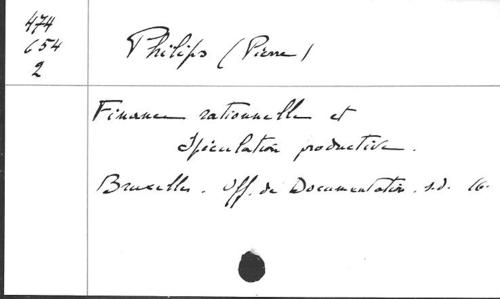 474
654
2
Philips (Pierre)
Finance rationnelle et
Spéculation productive.
Bruxelles. Off. de Documentation. s.d. 16.